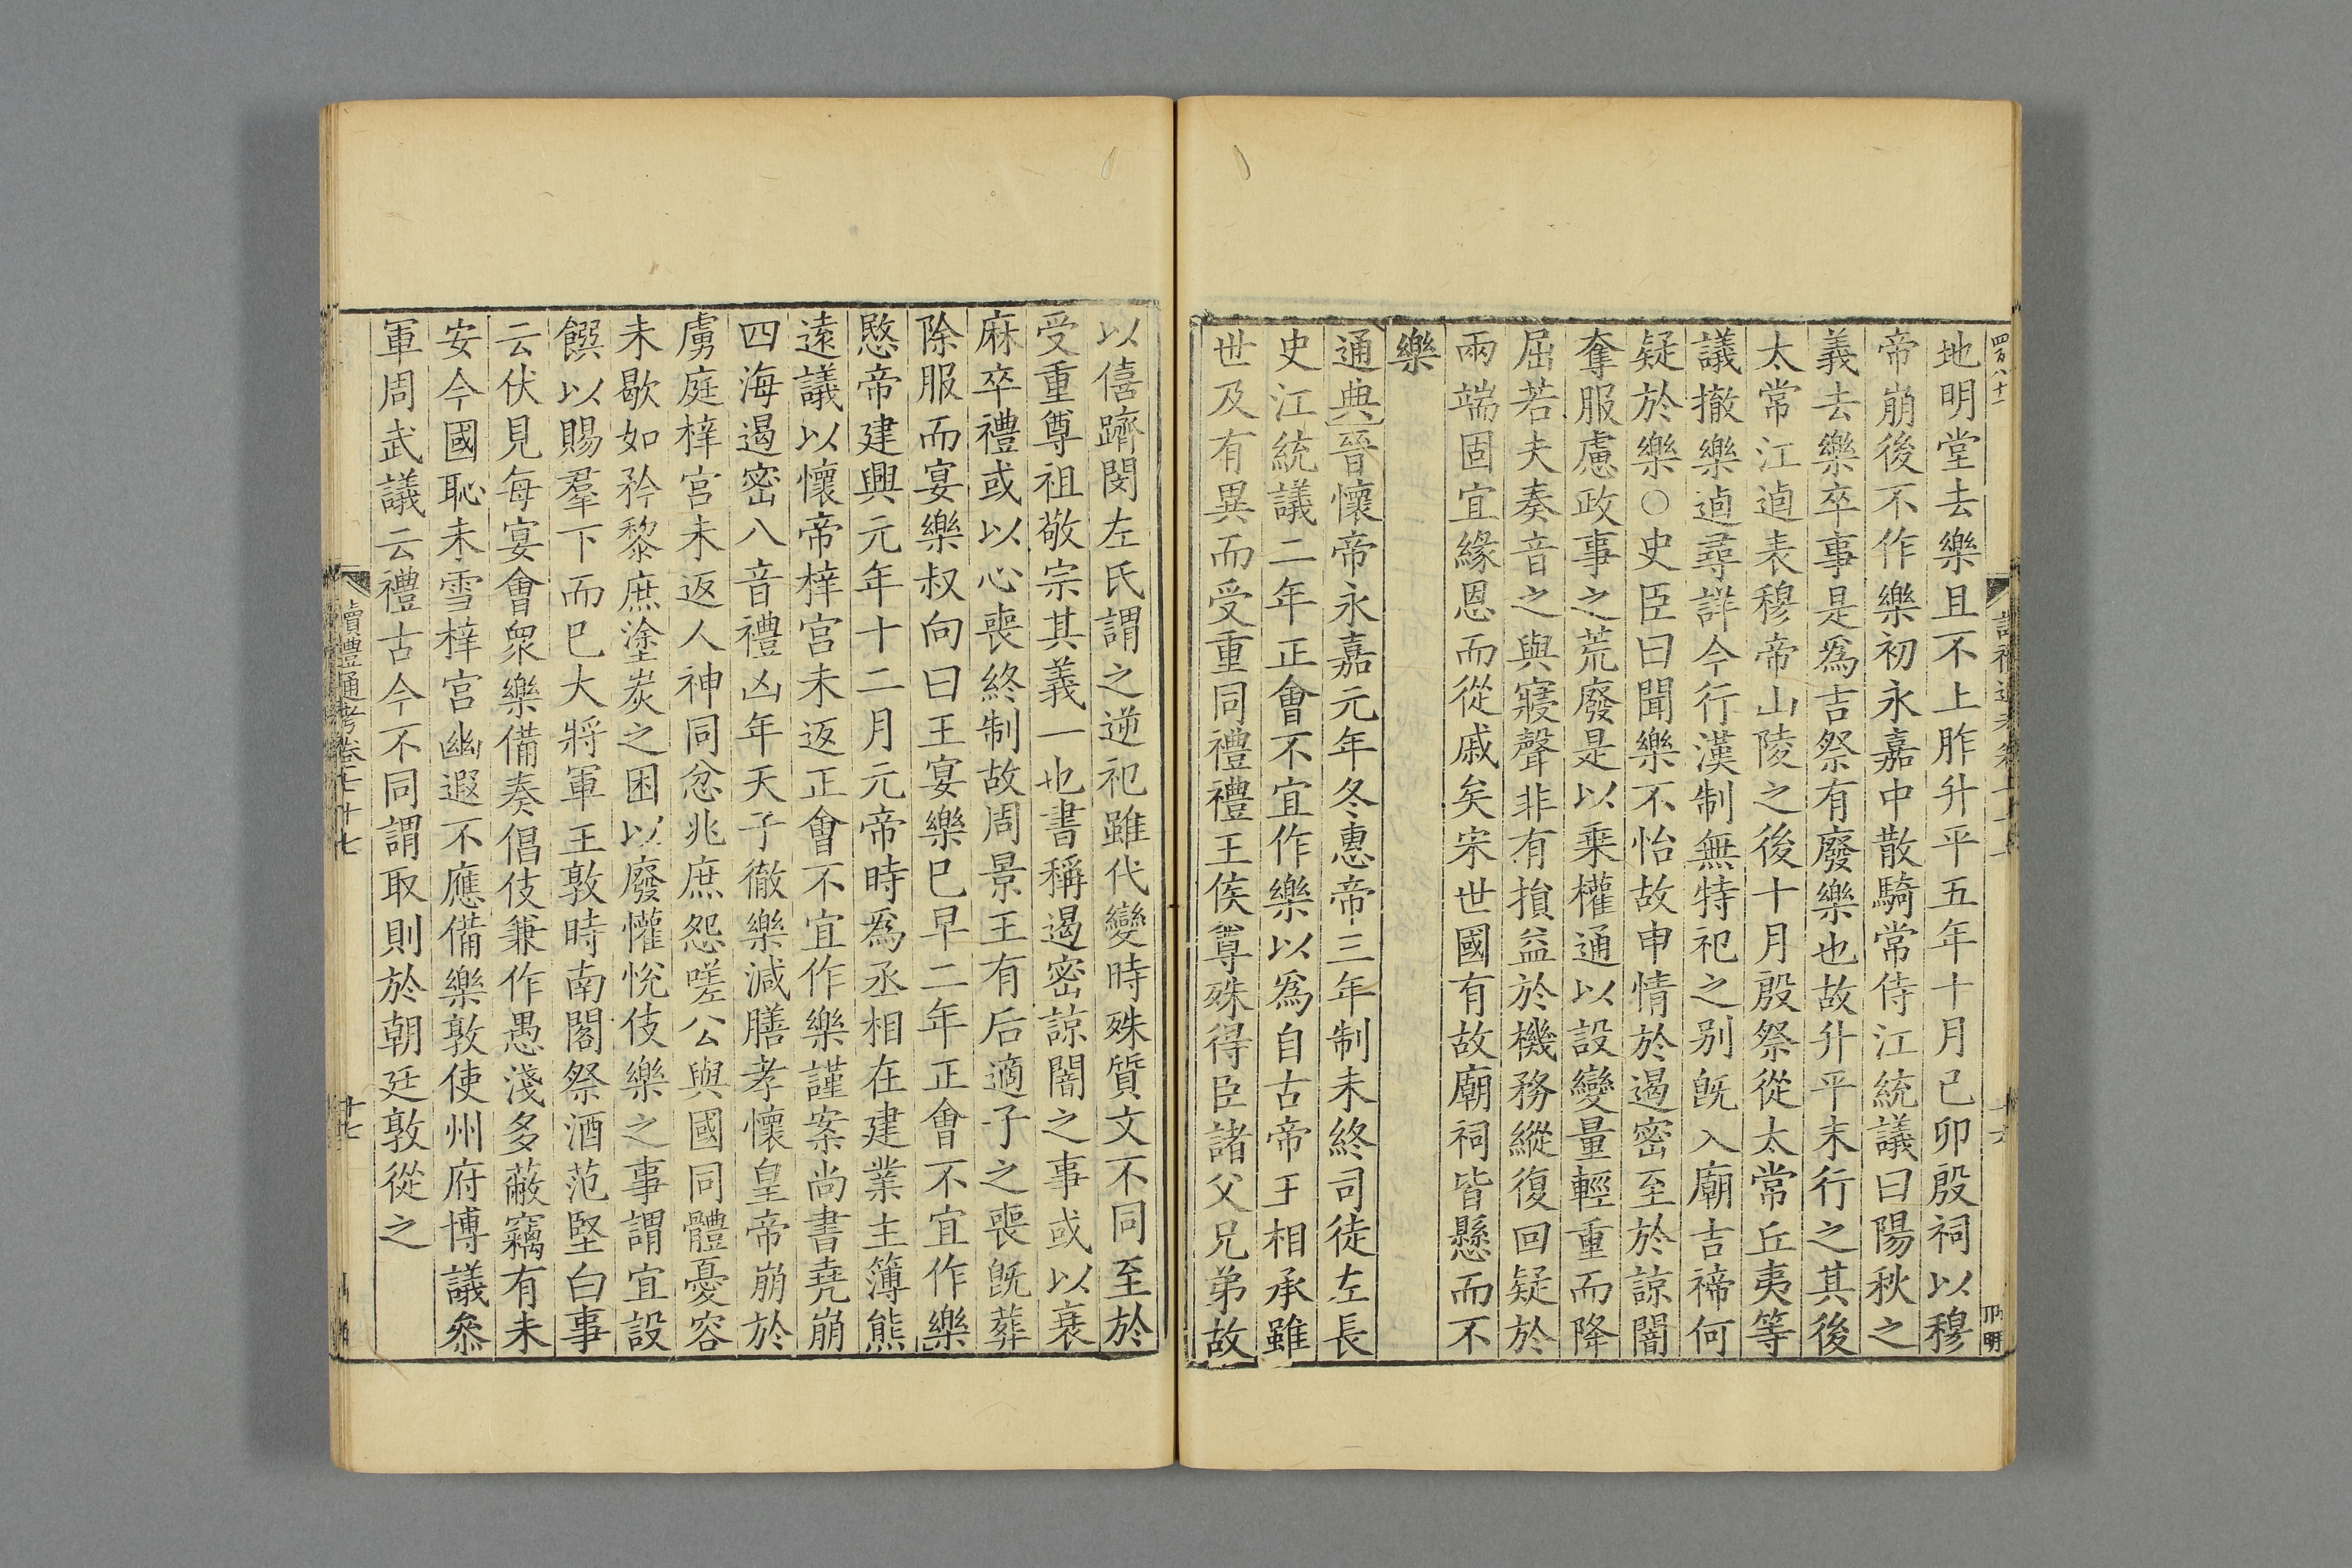 四百八十二
地明堂去樂且不上胙升平五年十月己卯殷祠以穆
帝崩後不作樂初永嘉中散騎常侍江統議曰陽秋之
義去樂卒事是爲吉祭有廢樂也故升平末行之其後
太常江逌表穆帝山陵之後十月殷祭從太常丘夷等
議撤樂逌尋詳今行漢制無特祀之别旣入廟吉禘何
疑於樂○史臣曰聞樂不怡故申情於遏密至於諒闇
奪服慮政事之荒廢是以乘權通以設變量輕重而降
屈若夫奏音之與寢聲非有損益於機務縱復回疑於
兩端固宜緣恩而從戚矣宋世國有故廟祠皆懸而不
樂
通典晉懷帝永嘉元年冬惠帝三年制未終司徒左長
史江統議二年正會不宜作樂以爲自古帝王相承雖
世及有異而受重同禮禮王侯尊殊得臣諸父兄弟故
以僖躋閔左氏謂之逆祀雖代變時殊質文不同至於
受重尊祖敬宗其義一也書稱遏密諒闇之事或以衰
麻卒禮或以心喪終制故周景王有后適子之喪旣葬
除服而宴樂叔向曰王宴樂已早二年正會不宜作樂
愍帝建興元年十二月元帝時爲丞相在建業主簿熊
遠議以懷帝梓宮未返正會不宜作樂謹案尚書堯崩
四海遏密八音禮凶年天子徹樂減膳孝懷皇帝崩於
虜庭梓宮未返人神同忿兆庶怨嗟公與國同體憂容
未歇如矜黎庶塗炭之困以廢懽悅伎樂之事謂宜設
饌以賜羣下而已大將軍王敦時南閣祭酒范堅白事
云伏見每宴會衆樂備奏倡伎兼作愚淺多蔽竊有未
安今國恥未雪梓宮幽遐不應備樂敦使州府博議叅
軍周武議云禮古今不同謂取則於朝廷敦從之
讀禮通考卷七十七
十七